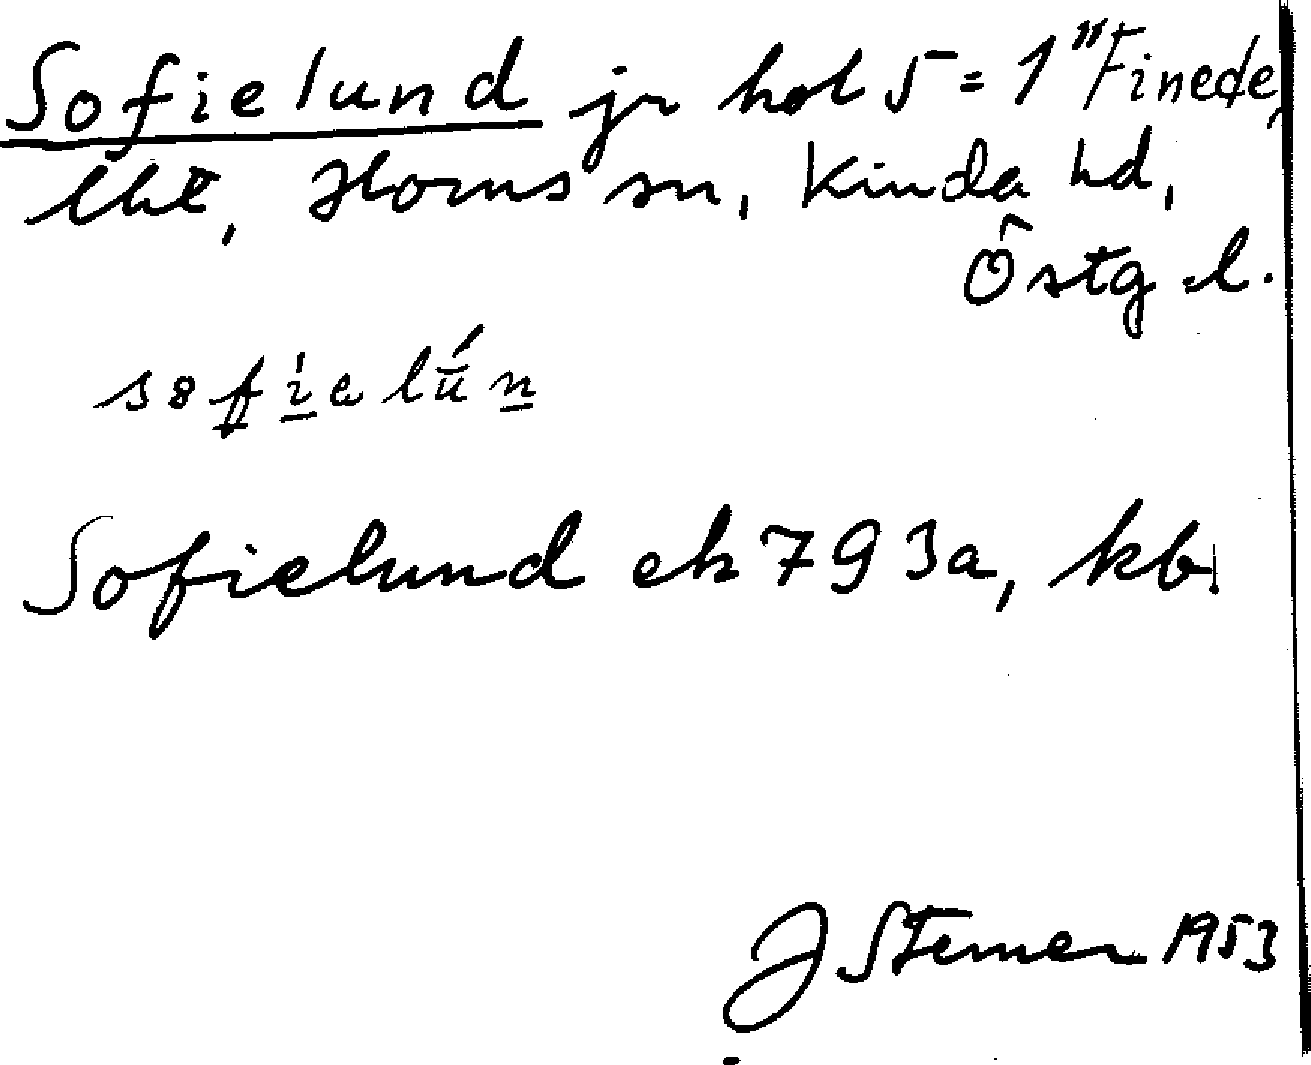 Sofielund jr hol 5 = 1 "Finede,
lht, Horns sn, Kinda hd,
Östg. l.
sofielún
Sofielund ek 793a, kb.
J Sterner 1953